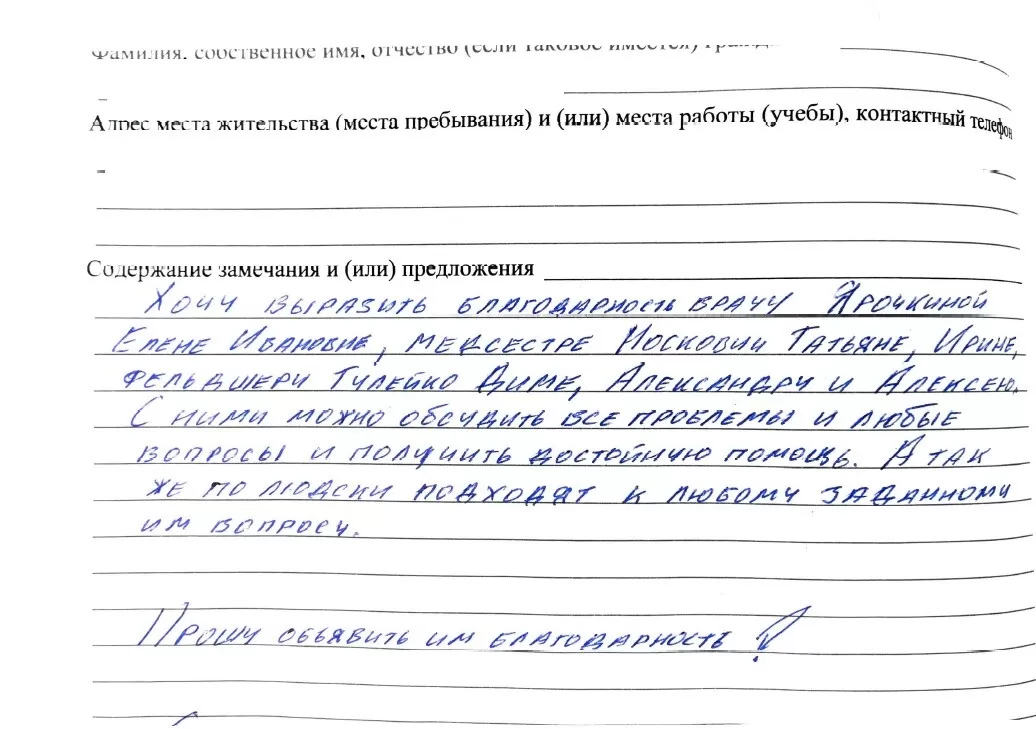 Фамилия, собственное имя, отчество (если таковое имеется)
Адрес места жительства (места пребывания) и (или) места работы (учебы), контактный телефон
Содержание замечания и (или) предложения
Хочу выразить благодарность врачу Ярочкиной
Елене Ивановне, медсестре Москович Татьяне, Ирине,
фельдшеру Тулейко Диме, Александру и Алексею.
С ними можно обсудить все проблемы и любые
вопросы и получить достойную помощь. А так
же по людски подходят к любому заданному
им вопросу.
Прошу объявить им благодарность!